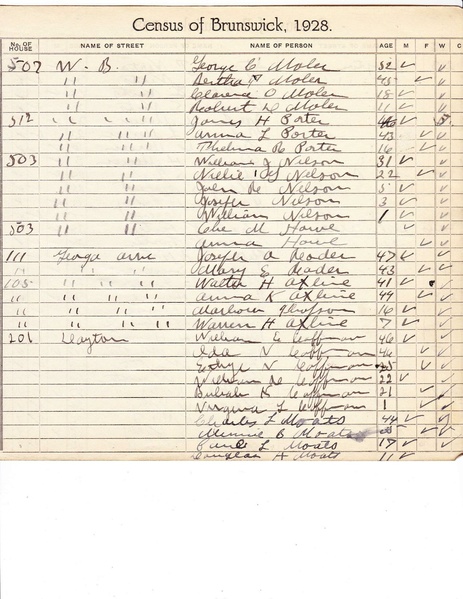 Census of Brunswick, 1928.
No. OF HOUSE NAME OF STREET NAME OF PERSON AGE M F W C
507 W. B. George C Moler 52 ✓ ✓
" " Bertha Moler 45 ✓ ✓
" " Clarence O Moler 18 ✓ ✓
" " Robert D Moler 11 ✓ ✓
512 " " James H Porter ✓
" " Anna L Porter 43 ✓ ✓
" " Thelma R Porter 16 ✓ ✓
503 " " William J Nilson 31 ✓ ✓
" " Nellie Nilson 22 ✓ ✓
" " John Nilson 5 ✓ ✓
" " Joseph Nilson 3 ✓ ✓
" " William Nilson 1 ✓ ✓
503 " " M Howe ✓ ✓
Anna Howe ✓ ✓
111 George Joseph A Reader 47 ✓ ✓
" " " Mary E Reader 43 ✓ ✓
105 " " " Walter H Axline 41 ✓ ✓
" " " " Anna K Axline 49 ✓ ✓
" " " " 16 ✓ ✓
" " " " Warren H Axline 7 ✓ ✓
201 Dayton William Coffman 46 ✓ ✓
Ida V Coffman 46 ✓ ✓
V Coffman 25 ✓ ✓
William Coffman 22 ✓ ✓
Beulah K Coffman 21 ✓ ✓
Virginia L Coffman 1 ✓ ✓
Charles L Moats 44 ✓ ✓
Minnie B Moats ✓ ✓
L Moats 17 ✓ ✓
H Moats 11 ✓